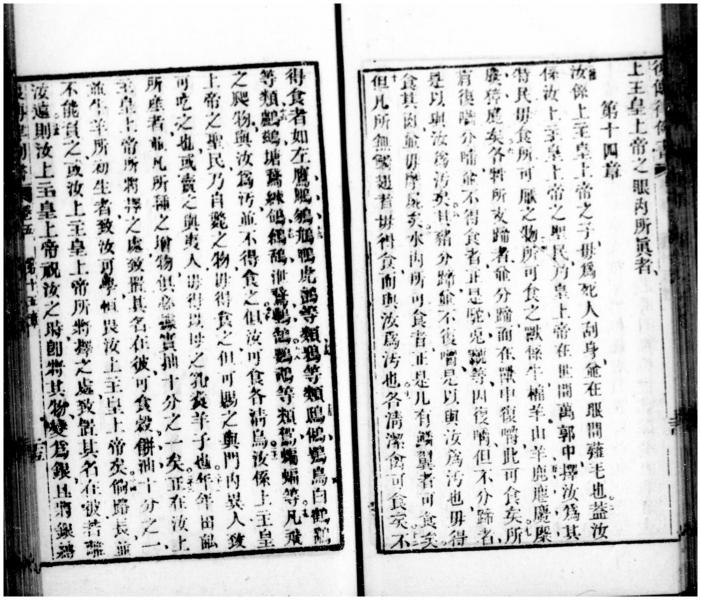 上主皇上帝之眼內所真者
第十四章
汝係上主皇上帝之子毋爲死人刮身並在眼間薙毛也蓋汝
係汝上主皇上帝之聖民乃皇上帝在世間萬郭中擇汝爲其
特民毋食所可厭之物所可食之獸係牛棉羊山羊鹿
等矣各將所支蹄者並分蹄而在獸中復嚼此可食矣所
復嚼分蹄並不得食者正是駝兔等因復嚼但不分蹄者
是以與汝爲汚矣其豬分蹄並不復嚼是以與汝爲汚也毋得
食其肉並毋摩屍矣水內所可食者正是凡有鱗翼者可食矣
但凡所無鱗翅者毋得食而與汝爲汚也各清潔禽可食矣不
得食者如左鷹虎等類鴉等類鳥白鶴
等類塘等類蝙蝠等凡飛
之爬物與汝爲汚並不得食之但汝可食各清鳥汝係上主皇
上帝之聖民乃自斃之物毋得食之但可賜之與門內異人致
可吃之也或賣之與夷人毋得以母之乳煮羊子也年年田畝
所產者並凡所種之增物但必抽十分之一矣正在汝上
主皇上帝所將擇之處致置其名在彼可食穀餅油十分之一
並牛羊所初生者致汝可學恒畏汝上主皇上帝矣倘路長並
不能負之或汝上主皇上帝所將擇之處致置其名在彼若離
汝遠則汝上主皇上帝祝汝之時卽將其物變爲銀且將銀